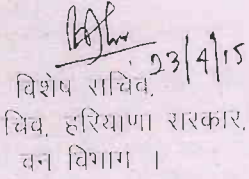 23/4/15
विशेष सचिव,
चिव, हरियाणा सरकार,
वन विभाग ।